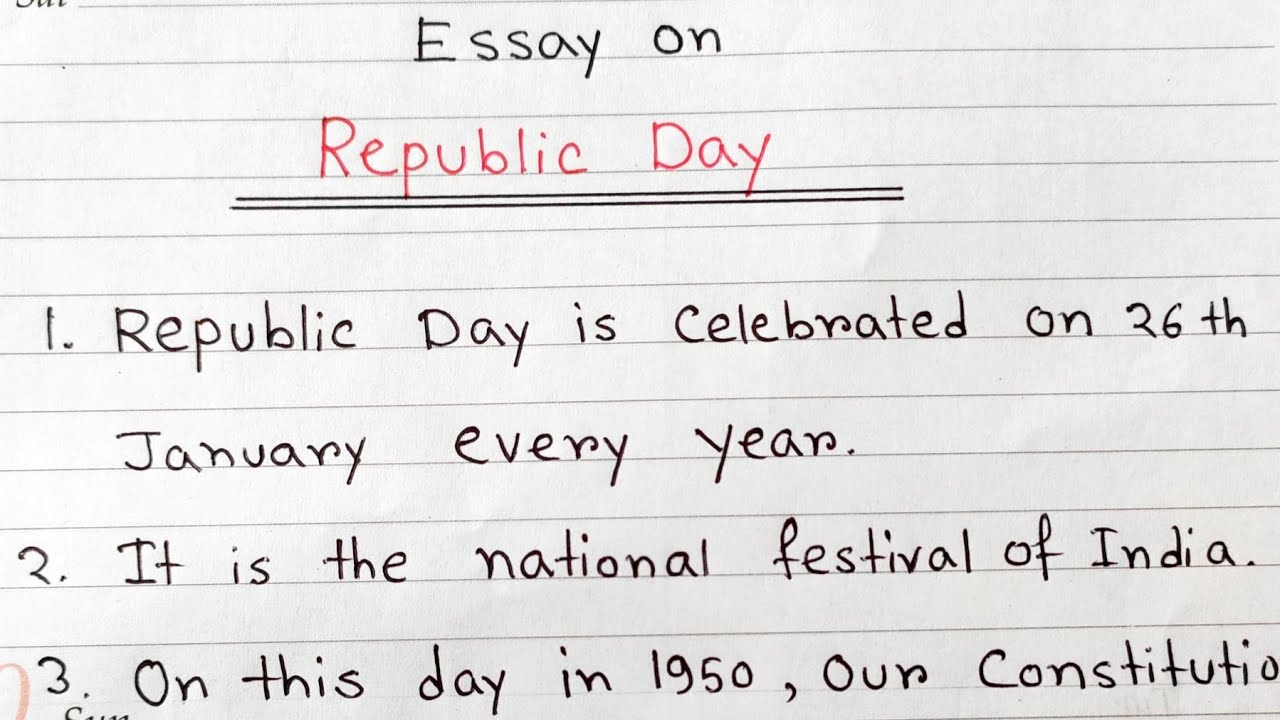 Essay on
Republic Day
1. Republic Day is celebrated on 26th
January every year.
2. It is the national festival of India.
3. On this day in 1950, Our Constitutio